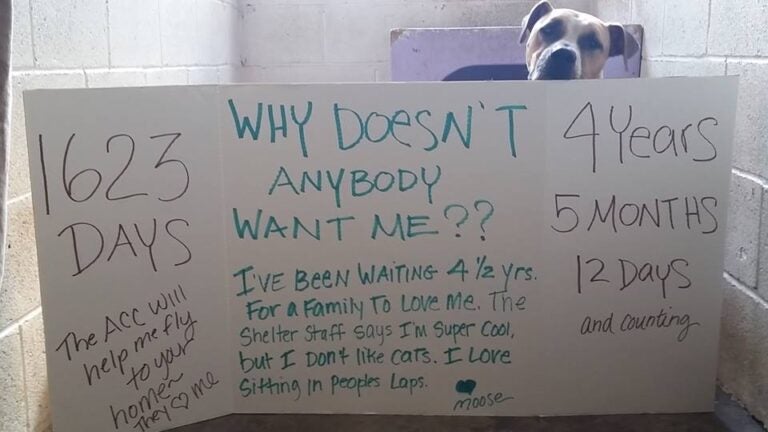 1623
DAYS
The ACC will
help me fly
to your
home~
They ♥ me
WHY DOESN'T
ANYBODY
WANT ME??
I'VE BEEN WAITING 4 ½ yrs.
For a Family To Love Me. The
Shelter Staff Says I'm Super Cool,
but I Don't like cats. I Love
Sitting In Peoples Laps.
♥
moose
4 Years
5 MONTHS
12 Days
and counting